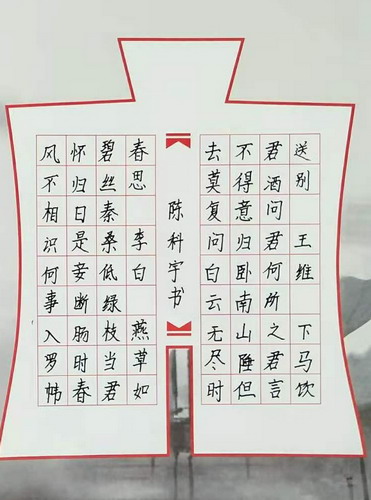 送别 王维 下马饮
君酒问君何所之君言
不得意归卧南山陲但
去莫复问白云无尽时
陈科宇书
春思 李白 燕草如
碧丝秦桑低绿枝当君
怀归日是妾断肠时春
风不相识何事入罗帏